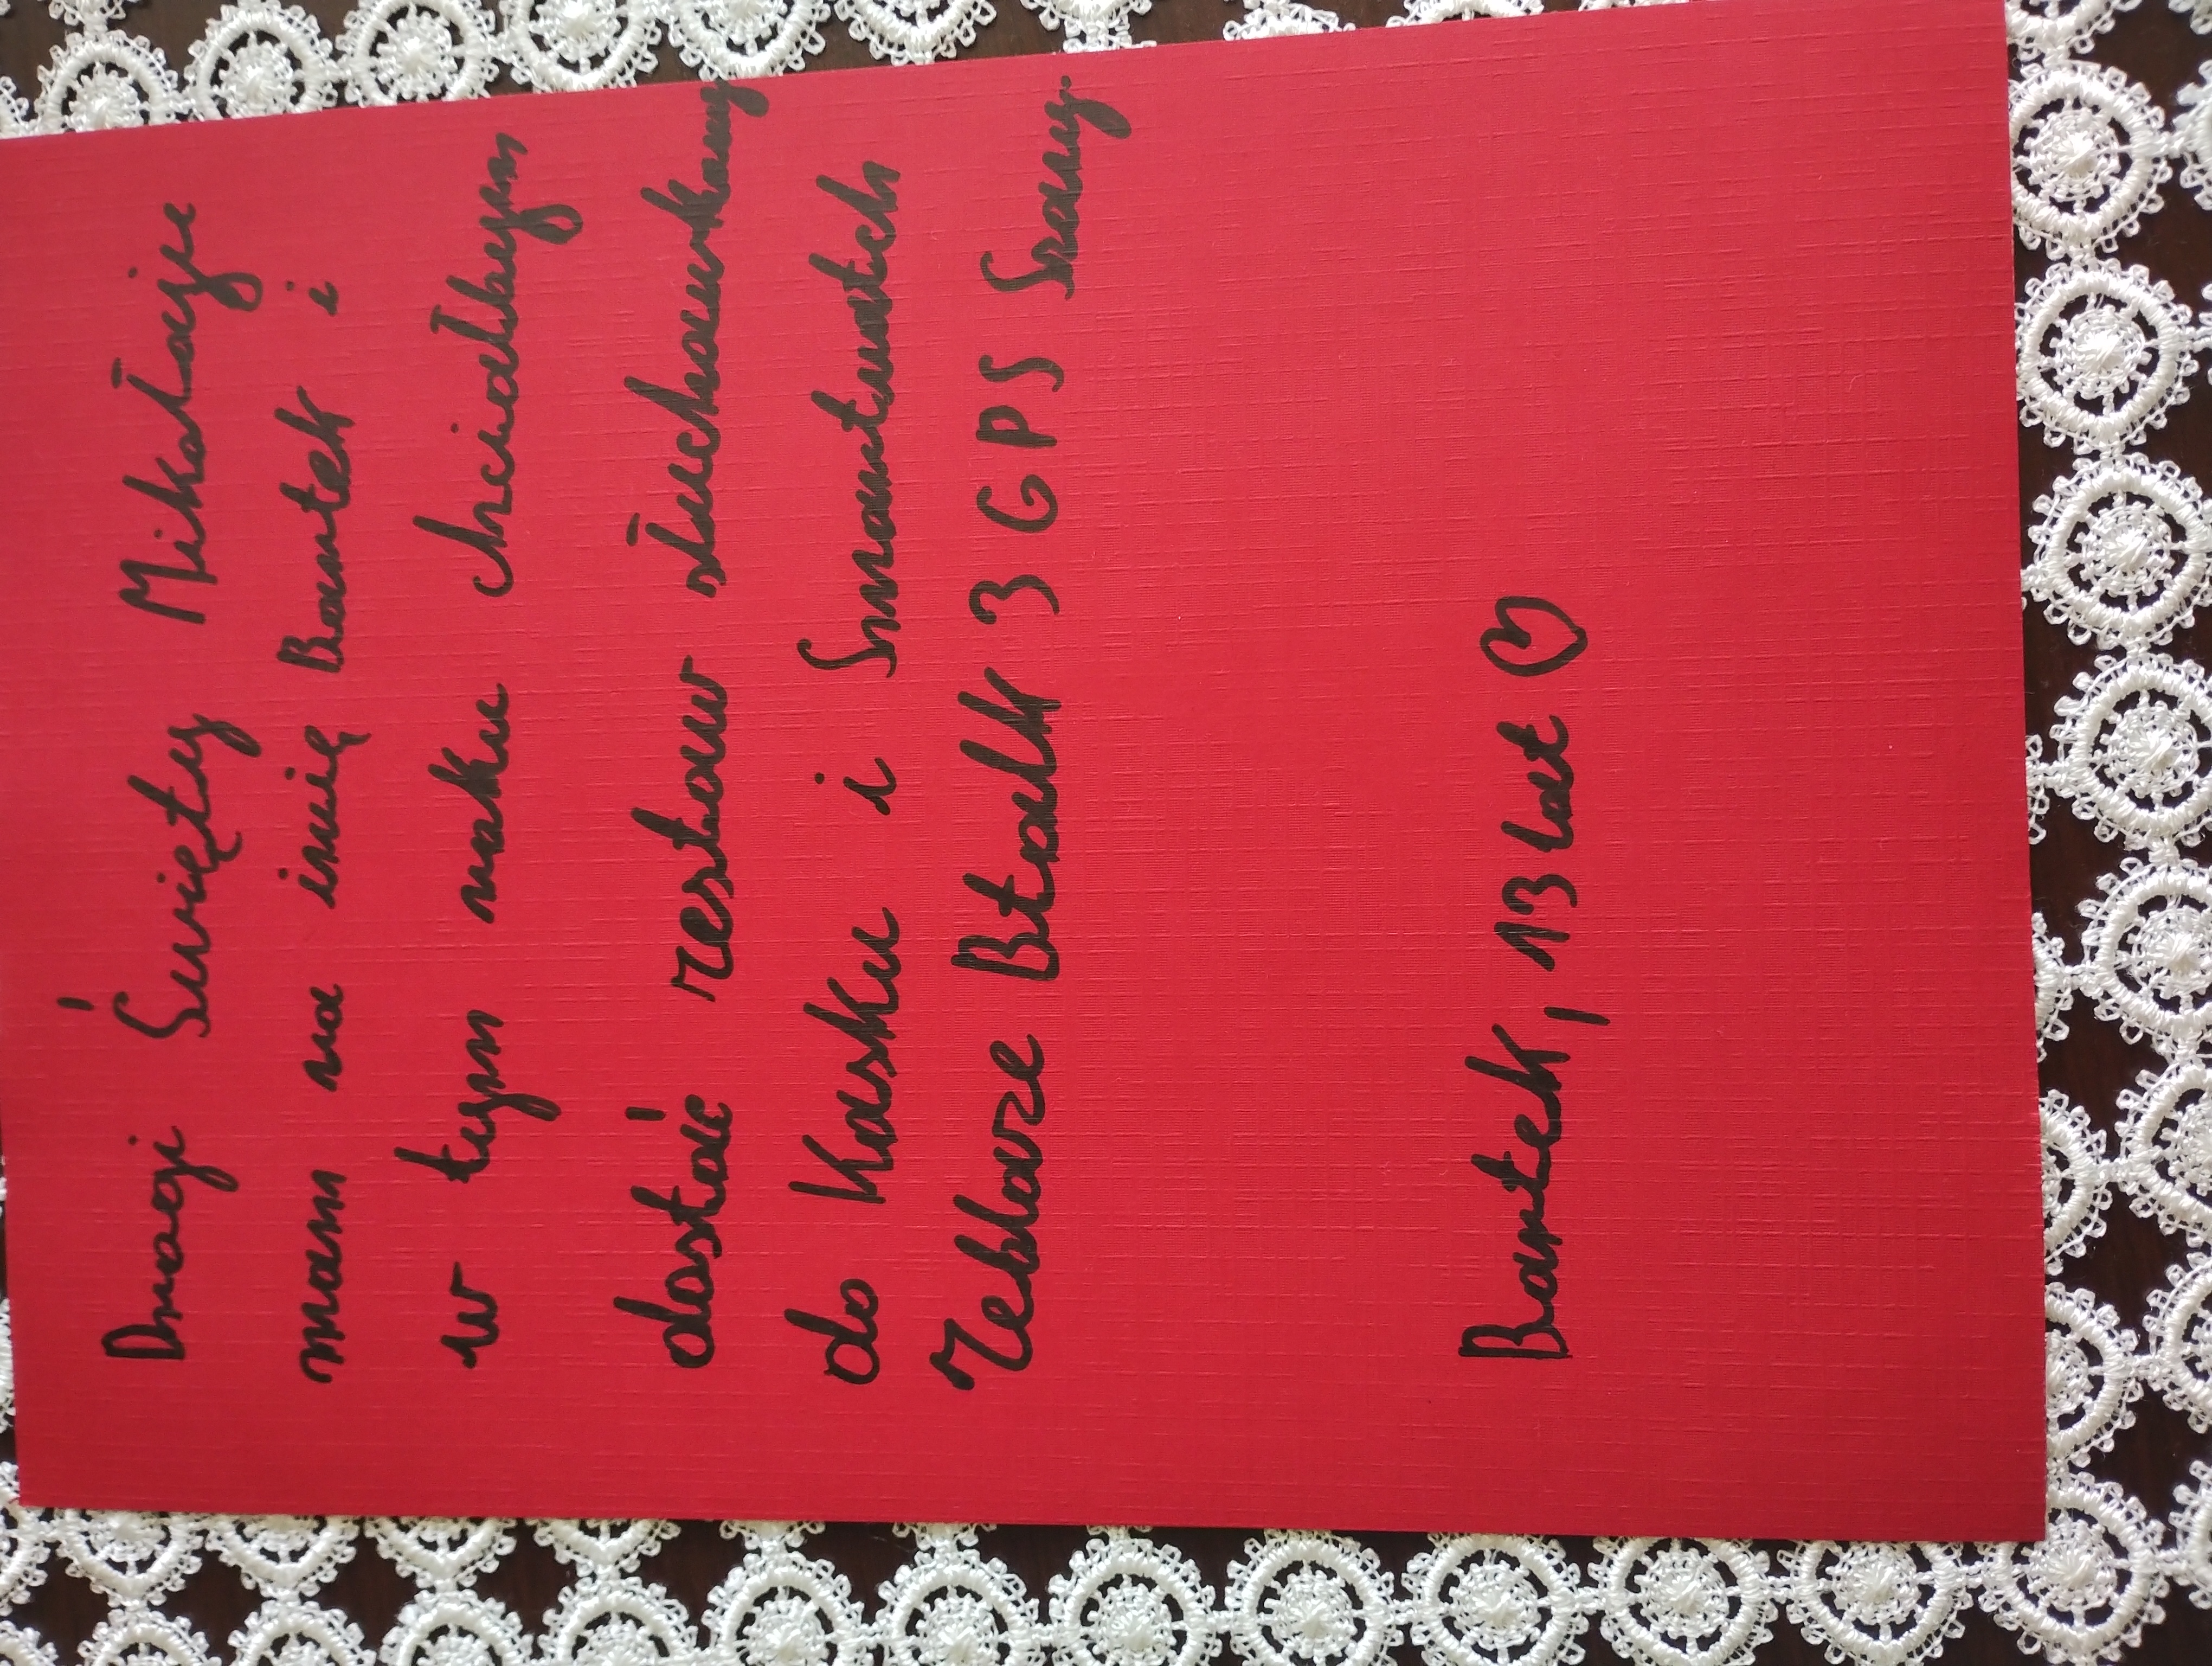 Drogi Święty Mikołaje
mam na imię Bartek i
w tym roku chciałbym
dostać zestaw słuchawkowy
do Kasku i Smartwatch
Zeblaze Btalk 3 GPS Szary.
Bartek, 13 lat ♡